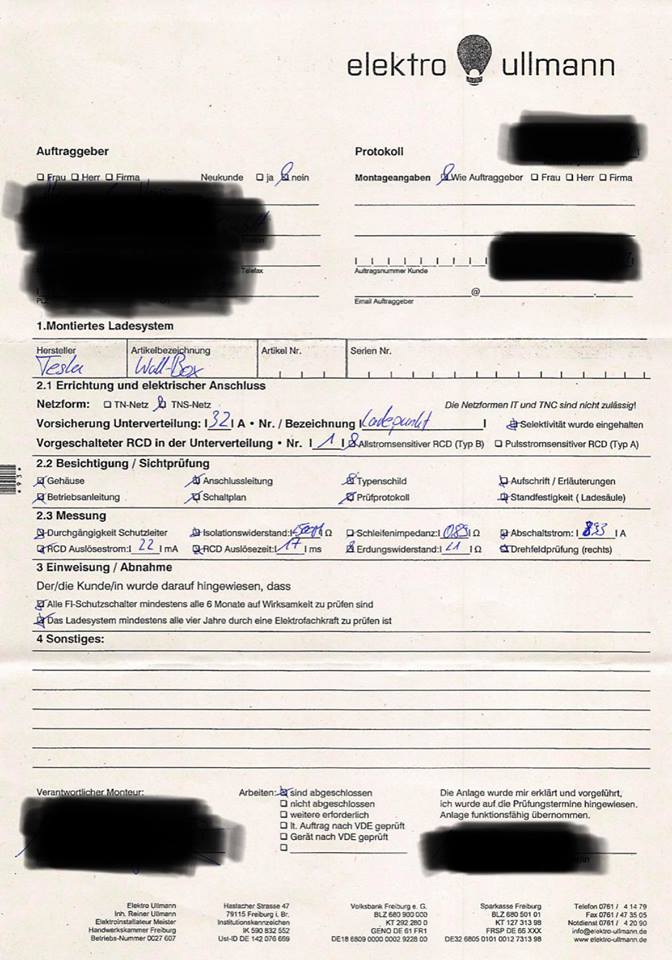 elektro ullmann
Auftraggeber
Protokoll
Frau Herr Firma Neukunde ja nein
Montageangaben Wie Auftraggeber Frau Herr Firma
Telefax
Auftragsnummer Kunde
@
Email Auftraggeber
1.Montiertes Ladesystem
Hersteller Artikelbezeichnung Artikel Nr. Serien Nr.
Tesla Wall-Box
2.1 Errichtung und elektrischer Anschluss
Netzform: TN-Netz TNS-Netz Die Netzformen IT und TNC sind nicht zulässig!
Vorsicherung Unterverteilung: 32 A • Nr. / Bezeichnung Ladepunkt Selektivität wurde eingehalten
Vorgeschalteter RCD in der Unterverteilung • Nr. 1 Allstromsensitiver RCD (Typ B) Pulsstromsensitiver RCD (Typ A)
2.2 Besichtigung / Sichtprüfung
Gehäuse Anschlussleitung Typenschild Aufschrift / Erläuterungen
Betriebsanleitung Schaltplan Prüfprotokoll Standfestigkeit ( Ladesäule)
2.3 Messung
Durchgängigkeit Schutzleiter Isolationswiderstand: Ω Schleifenimpedanz: Ω Abschaltstrom: A
RCD Auslösestrom: 22 mA RCD Auslösezeit: 17 ms Erdungswiderstand: Ω Drehfeldprüfung (rechts)
3 Einweisung / Abnahme
Der/die Kunde/in wurde darauf hingewiesen, dass
Alle FI-Schutzschalter mindestens alle 6 Monate auf Wirksamkeit zu prüfen sind
Das Ladesystem mindestens alle vier Jahre durch eine Elektrofachkraft zu prüfen ist
4 Sonstiges:
Verantwortlicher Monteur: Arbeiten: sind abgeschlossen
nicht abgeschlossen
weitere erforderlich
lt. Auftrag nach VDE geprüft
Gerät nach VDE geprüft
Die Anlage wurde mir erklärt und vorgeführt,
ich wurde auf die Prüfungstermine hingewiesen.
Anlage funktionsfähig übernommen.
Elektro Ullmann
Inh. Reiner Ullmann
Elektroinstallateur Meister
Handwerkskammer Freiburg
Betriebs-Nummer 0027 607
Haslacher Strasse 47
79115 Freiburg i. Br.
Institutionskennzeichen
IK 590 832 552
Ust-ID DE 142 076 659
Volksbank Freiburg e. G.
BLZ 680 900 000
KT 292 280 0
GENO DE 61 FR1
DE18 6809 0000 0002 9228 00
Sparkasse Freiburg
BLZ 680 501 01
KT 127 313 98
FRSP DE 66 XXX
DE32 6805 0101 0012 7313 98
Telefon 0761 / 4 14 79
Fax 0761 / 47 35 05
Notdienst 0761 / 4 20 90
info@elektro-ullmann.de
www.elektro-ullmann.de